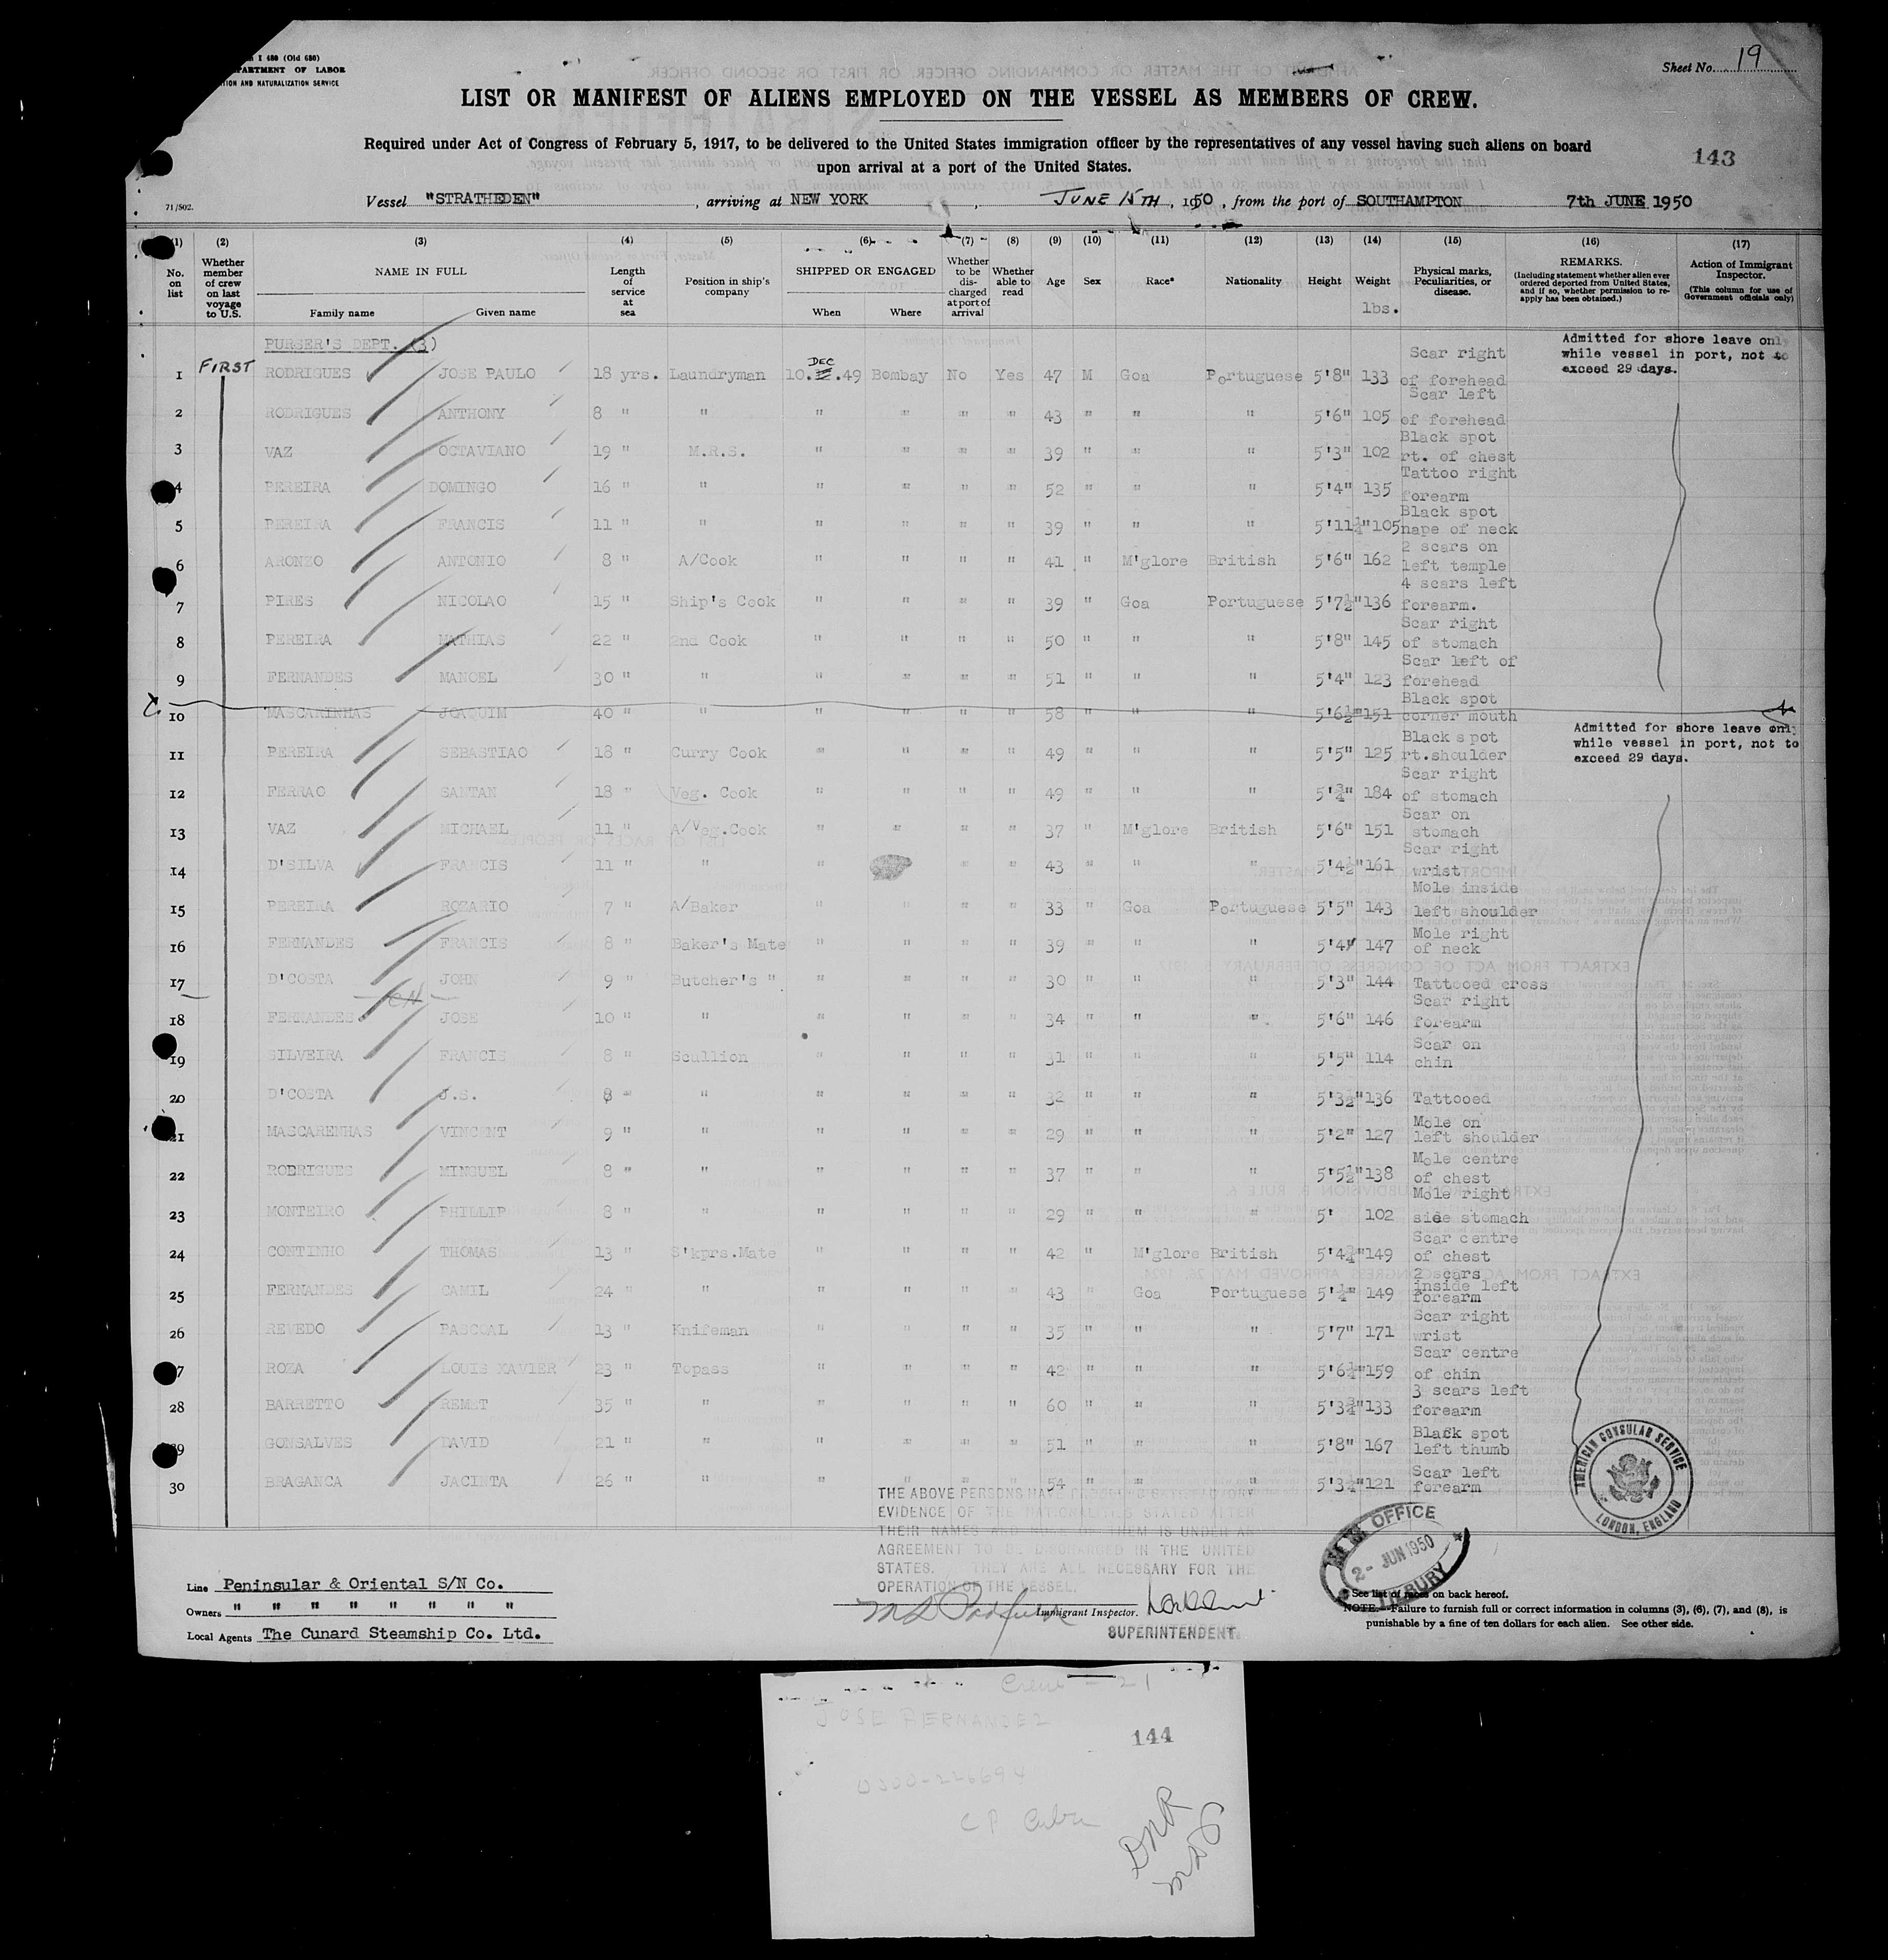 I 480 (Old 680)
PARTMENT OF LABOR
TION AND NATURALIZATION SERVICE
Sheet No. 19
LIST OR MANIFEST OF ALIENS EMPLOYED ON THE VESSEL AS MEMBERS OF CREW.
Required under Act of Congress of February 5, 1917, to be delivered to the United States immigration officer by the representatives of any vessel having such aliens on board
upon arrival at a port of the United States.
143
71/502.
Vessel "STRATHEDEN", arriving at NEW YORK, JUNE 15TH, 1950, from the port of SOUTHAMPTON 7th JUNE 1950
(1) (2) (3) (4) (5) (6) (7) (8) (9) (10) (11) (12) (13) (14) (15) (16) (17)
No. on list
Whether member of crew on last voyage to U.S.
NAME IN FULL
Family name Given name
Length of service at sea
Position in ship's company
SHIPPED OR ENGAGED
When Where
Whether to be discharged at port of arrival
Whether able to read
Age Sex Race* Nationality Height Weight lbs.
Physical marks, Peculiarities, or disease.
REMARKS.
(Including statement whether alien ever ordered deported from United States, and if so, whether permission to re-apply has been obtained.)
Action of Immigrant Inspector.
(This column for use of Government officials only)
PURSER'S DEPT. (3)
Admitted for shore leave only
while vessel in port, not to
exceed 29 days.
1 FIRST RODRIGUES JOSE PAULO 18 yrs. Laundryman 10. DEC .49 Bombay No Yes 47 M Goa Portuguese 5'8" 133 Scar right of forehead
2 RODRIGUES ANTHONY 8 " " " " " " 43 " " " 5'6" 105 Scar left of forehead
3 VAZ OCTAVIANO 19 " M.R.S. " " " " 39 " " " 5'3" 102 Black spot rt. of chest
4 PEREIRA DOMINGO 16 " " " " " " 52 " " " 5'4" 135 Tattoo right forearm
5 PEREIRA FRANCIS 11 " " " " " " 39 " " " 5'11¼" 105 Black spot nape of neck
6 ARONZO ANTONIO 8 " A/Cook " " " " 41 " M'glore British 5'6" 162 2 scars on left temple
7 PIRES NICOLAO 15 " Ship's Cook " " " " 39 " Goa Portuguese 5'7½" 136 4 scars left forearm.
8 PEREIRA MATHIAS 22 " 2nd Cook " " " " 50 " " " 5'8" 145 Scar right of stomach
9 FERNANDES MANOEL 30 " " " " " " 51 " " " 5'4" 123 Scar left of forehead
10 MASCARINHAS JOAQUIM 40 " " " " " " 58 " " " 5'6½" 151 Black spot corner mouth
Admitted for shore leave only
while vessel in port, not to
exceed 29 days.
11 PEREIRA SEBASTIAO 18 " Curry Cook " " " " 49 " " " 5'5" 125 Black spot rt.shoulder
12 FERRAO SANTAN 18 " Veg. Cook " " " " 49 " " " 5'¾" 184 Scar right of stomach
13 VAZ MICHAEL 11 " A/Veg.Cook " " " " 37 " M'glore British 5'6" 151 Scar on stomach
14 D'SILVA FRANCIS 11 " " " " " 43 " " " 5'4½" 161 Scar right wrist
15 PEREIRA ROZARIO 7 " A/Baker " " " " 33 " Goa Portuguese 5'5" 143 Mole inside left shoulder
16 FERNANDES FRANCIS 8 " Baker's Mate " " " " 39 " " " 5'4" 147 Mole right of neck
17 D'COSTA JOHN 9 " Butcher's " " " " " 30 " " " 5'3" 144 Tattooed cross
18 FERNANDES JOSE 10 " " " " " " 34 " " " 5'6" 146 Scar right forearm
19 SILVEIRA FRANCIS 8 " Scullion " " " " 31 " " " 5'5" 114 Scar on chin
20 D'COSTA J.S. 8 " " " " " " 32 " " " 5'3½" 136 Tattooed
21 MASCARENHAS VINCENT 9 " " " " " " 29 " " " 5'2" 127 Mole on left shoulder
22 RODRIGUES MINGUEL 8 " " " " " " 37 " " " 5'5½" 138 Mole centre of chest
23 MONTEIRO PHILLIP 8 " " " " " " 29 " " " 5' 102 Mole right side stomach
24 CONTINHO THOMAS 13 " S'kprs.Mate " " " " 42 " M'glore British 5'4¾" 149 Scar centre of chest
25 FERNANDES CAMIL 24 " " " " " " 43 " Goa Portuguese 5'¼" 149 2 scars inside left forearm
26 REVEDO PASCOAL 13 " Knifeman " " " " 35 " " " 5'7" 171 Scar right wrist
27 ROZA LOUIS XAVIER 23 " Topass " " " " 42 " " " 5'6¼" 159 Scar centre of chin
28 BARRETTO REMET 35 " " " " " " 60 " " " 5'3¾" 133 3 scars left forearm
29 GONSALVES DAVID 21 " " " " " " 51 " " " 5'8" 167 Black spot left thumb
30 BRAGANCA JACINTA 26 " " " " " " 54 " " " 121 Scar left forearm
THE ABOVE PERSONS HAVE PRODUCED SATISFACTORY
EVIDENCE OF THE NATIONALITIES STATED AFTER
THEIR NAMES AND NONE OF THEM IS UNDER AN
AGREEMENT TO BE DISCHARGED IN THE UNITED
STATES. THEY ARE ALL NECESSARY FOR THE
OPERATION OF THE VESSEL.
AMERICAN CONSULAR SERVICE
LONDON, ENGLAND
M M OFFICE
2- JUN 1950
TILBURY
Line Peninsular & Oriental S/N Co.
Owners " " " " " " " "
Local Agents The Cunard Steamship Co. Ltd.
Immigrant Inspector.
SUPERINTENDENT.
* See list of races on back hereof.
NOTE.—Failure to furnish full or correct information in columns (3), (6), (7), and (8), is
punishable by a fine of ten dollars for each alien. See other side.
Crew - 21
JOSE FERNANDEZ
144
0300-226694
C P Cuba
DNR